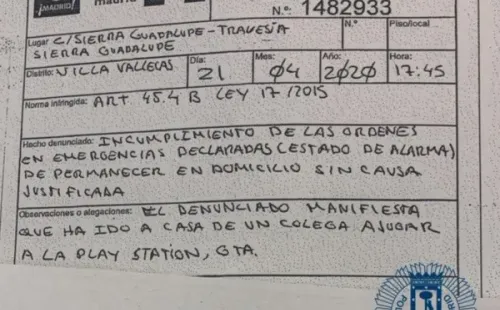 ¡MADRID!
N.º: 1482933
Lugar C/SIERRA GUADALUPE - TRAVESÍA N.º Piso/local
SIERRA GUADALUPE
Distrito: VILLA VALLECAS Día: 21 Mes: 04 Año: 2020 Hora: 17:45
Norma infringida: ART 45.4 B LEY 17/2015
Hecho denunciado: INCUMPLIMIENTO DE LAS ORDENES
EN EMERGENCIAS DECLARADAS (ESTADO DE ALARMA)
DE PERMANECER EN DOMICILIO SIN CAUSA
JUSTIFICADA
Observaciones o alegaciones: EL DENUNCIADO MANIFIESTA
QUE HA IDO A CASA DE UN COLEGA A JUGAR
A LA PLAY STATION, GTA.